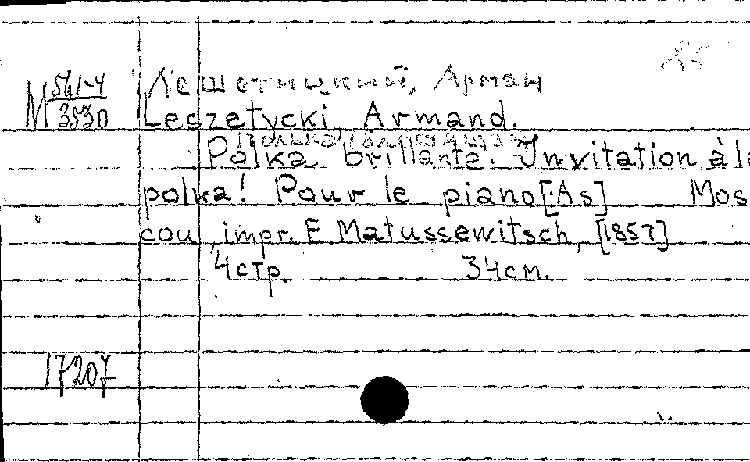 Лешетицкий, Арман
М 561-4/3530
Leszetycki Armand.
Polka brillante. Invitation à la
polka! Pour le piano [As] Mos
cou, impr. E Matussewitsch, [1857]
4 стр. 34 см.
17207